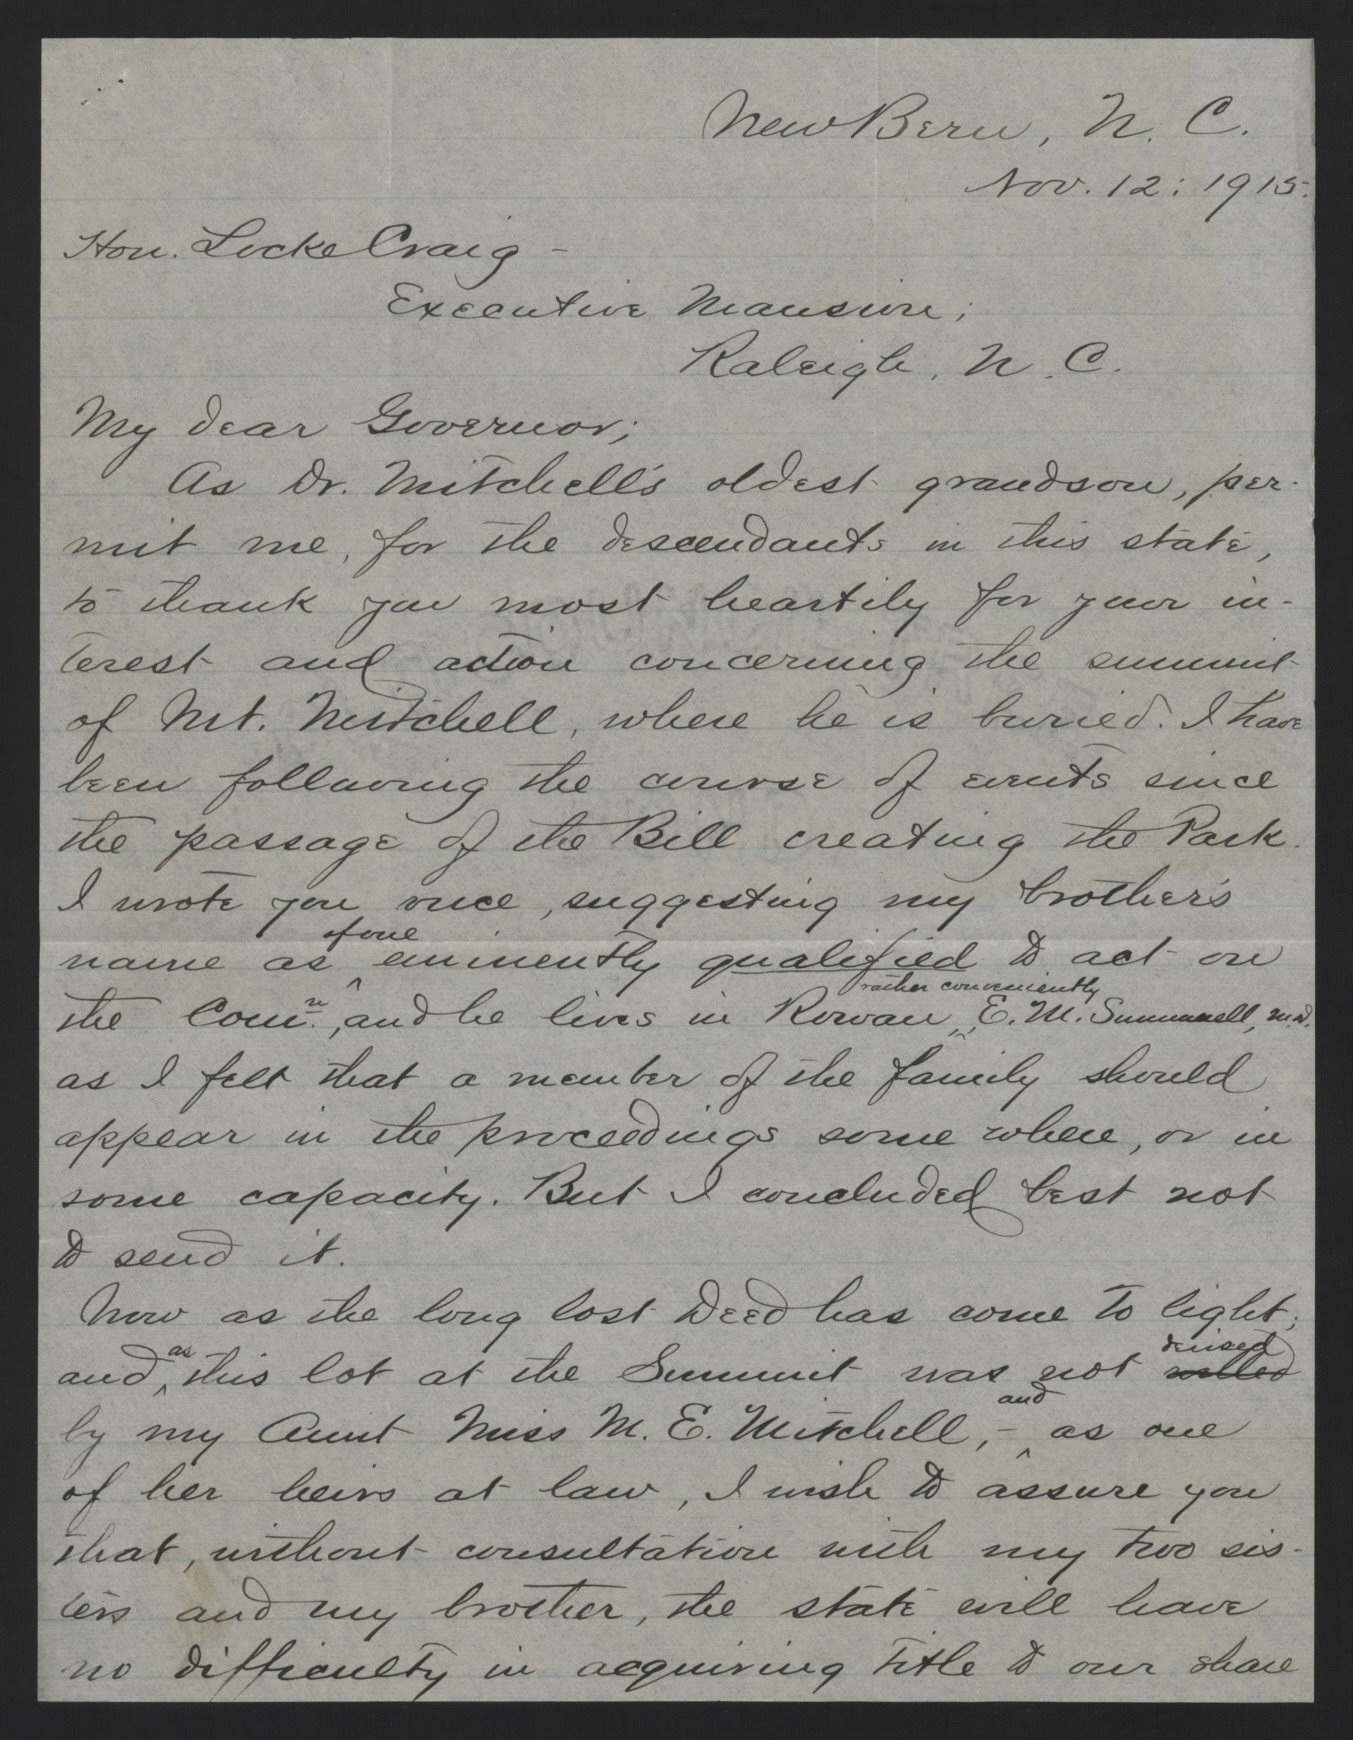 New Bern, N. C.
Nov. 12: 1915.
Hon. Locke Craig -
Executive Mansion;
Raleigh, N. C.
My dear Governor;
As Dr. Mitchell's oldest grandson, per-
mit me, for the descendants in this state,
to thank you most heartily for your in-
terest and action concerning the summit
of Mt. Mitchell, where he is buried. I have
been following the course of events since
the passage of the Bill creating the Park.
I wrote you once, suggesting my brother's
name as of one eminently qualified to act on
the Comn., and he lives in Rowan rather conveniently, E. M. Summerell, M.D.
as I felt that a member of the family should
appear in the proceedings some where, or in
some capacity. But I concluded best not
to send it.
Now as the long lost Deed has come to light;
and, as this lot at the Summit was not willed devised
by my Aunt Miss M. E. Mitchell, - and as one
of her heirs at law, I wish to assure you
that, without consultation with my two sis-
ters and my brother, the state will have
no difficulty in acquiring title to our share